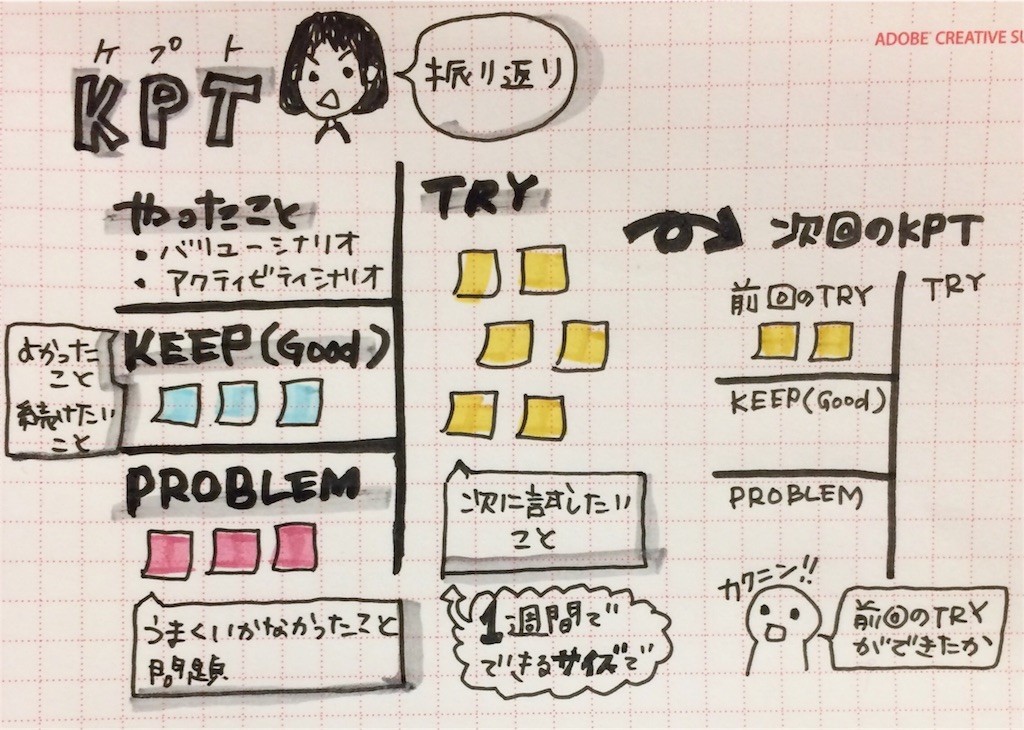 ADOBE CREATIVE SU
ケプト
KPT
振り返り
やったこと
• バリューシナリオ
• アクティビティシナリオ
KEEP(Good)
よかった
こと
続けたい
こと
PROBLEM
うまくいかなかったこと
問題
TRY
次に試したい
こと
1週間で
できるサイズで
次回のKPT
前回のTRY
TRY
KEEP(Good)
PROBLEM
カクニン!!
前回のTRY
ができたか